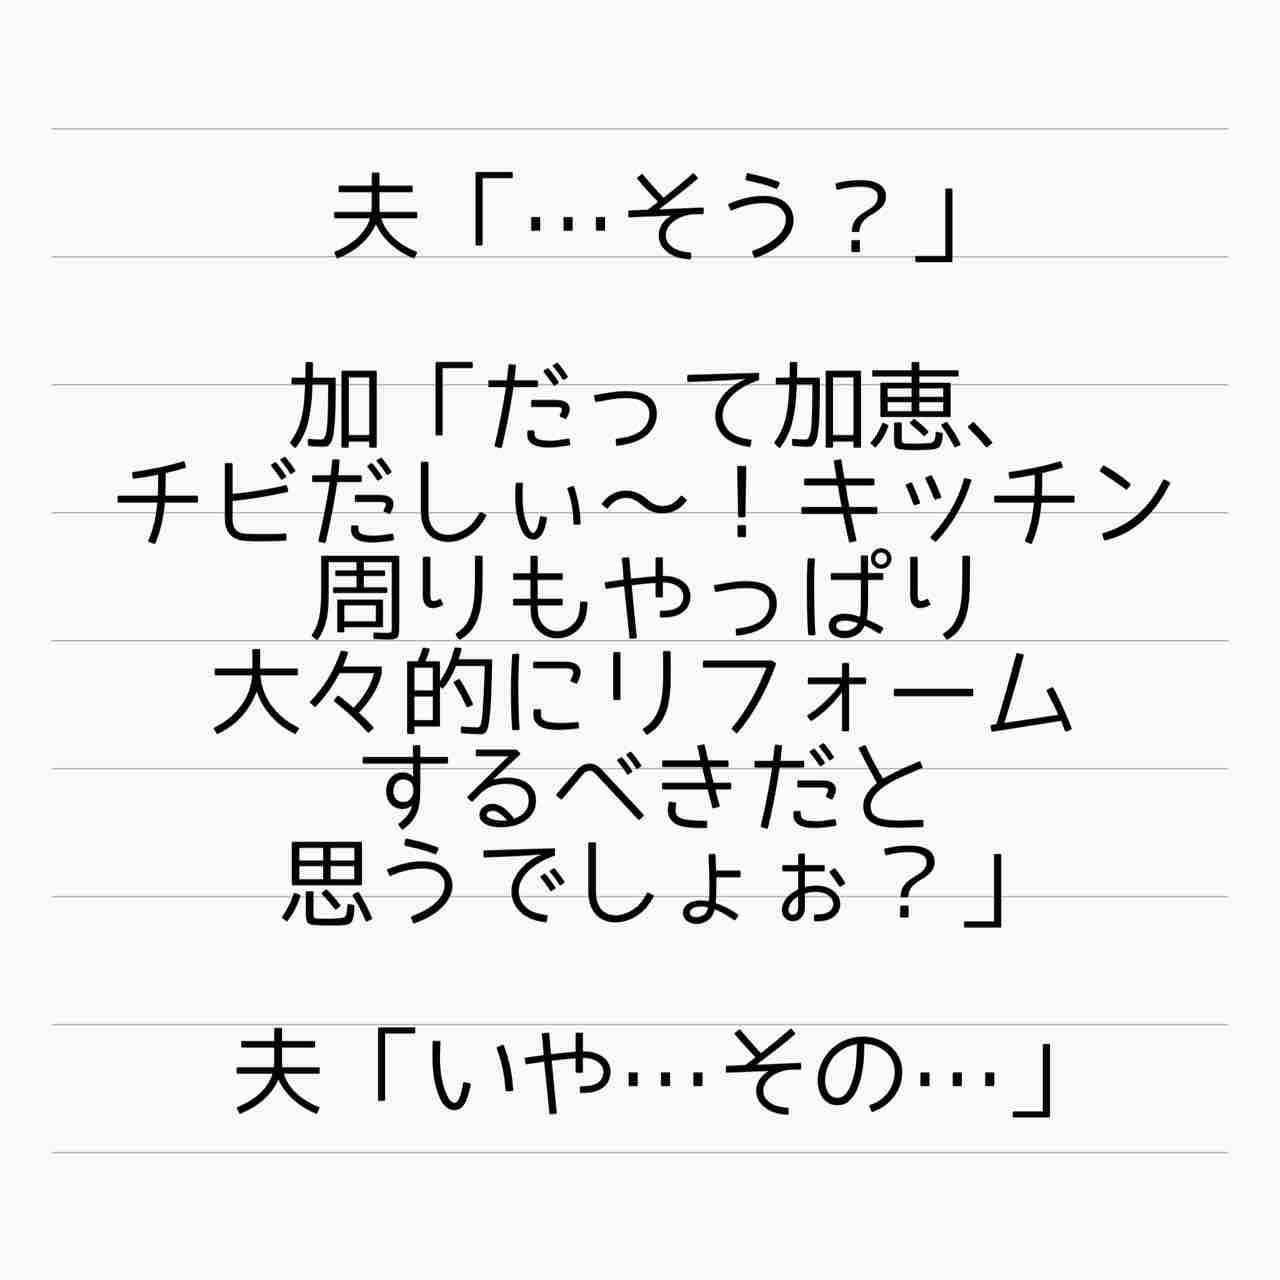 夫「…そう？」
加「だって加恵、
チビだしぃ〜！キッチン
周りもやっぱり
大々的にリフォーム
するべきだと
思うでしょぉ？」
夫「いや…その…」